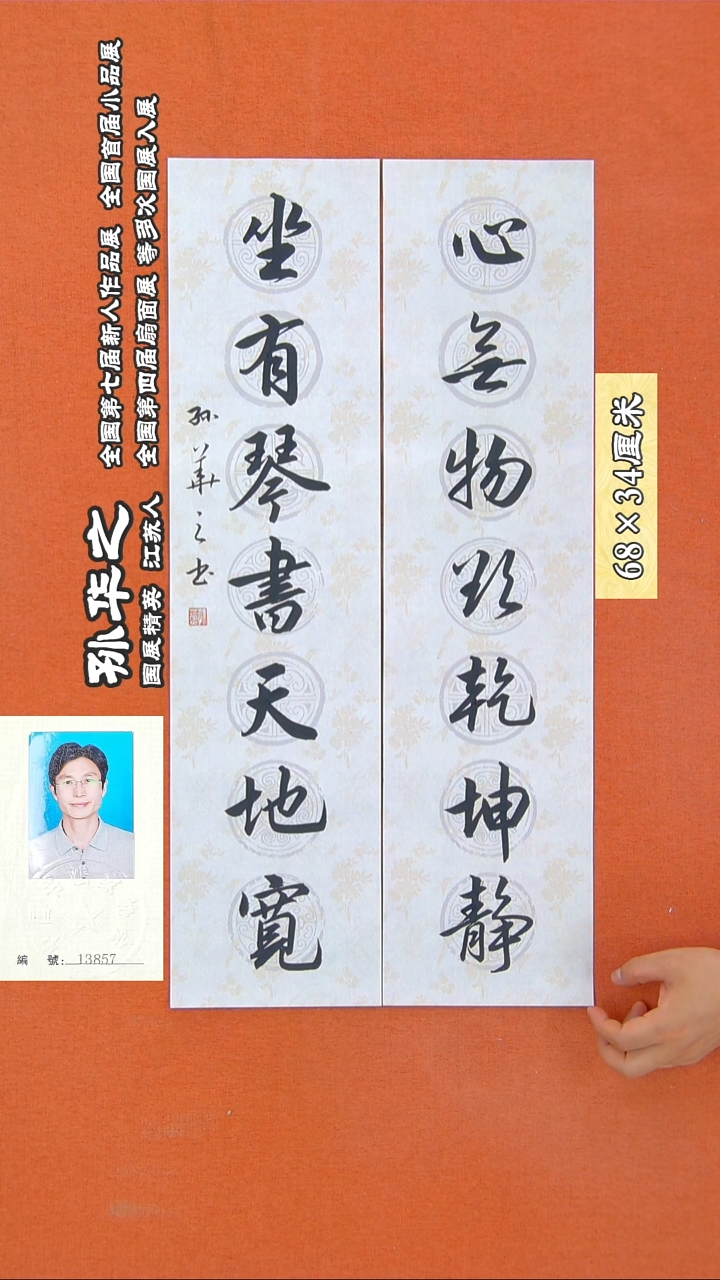 心無物欲乾坤静
坐有琴書天地寬
孙華之书
孙华之
国展精英 江苏人
全国第七届新人作品展 全国首届小品展
全国第四届扇面展 等多次国展入展
68×34厘米
編 號: 13857